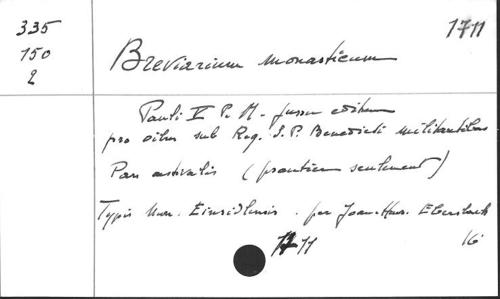 335 1711
150 Breviarium monasticum
2
Pauli V P. M. jussu editum
pro oibus sub Reg. S. P. Benedicti militantibus
Pars aestivalis (frontier seulement)
Typis Mon. Einsidlensis. per Joan. Henr. Ebersbach
1711 16